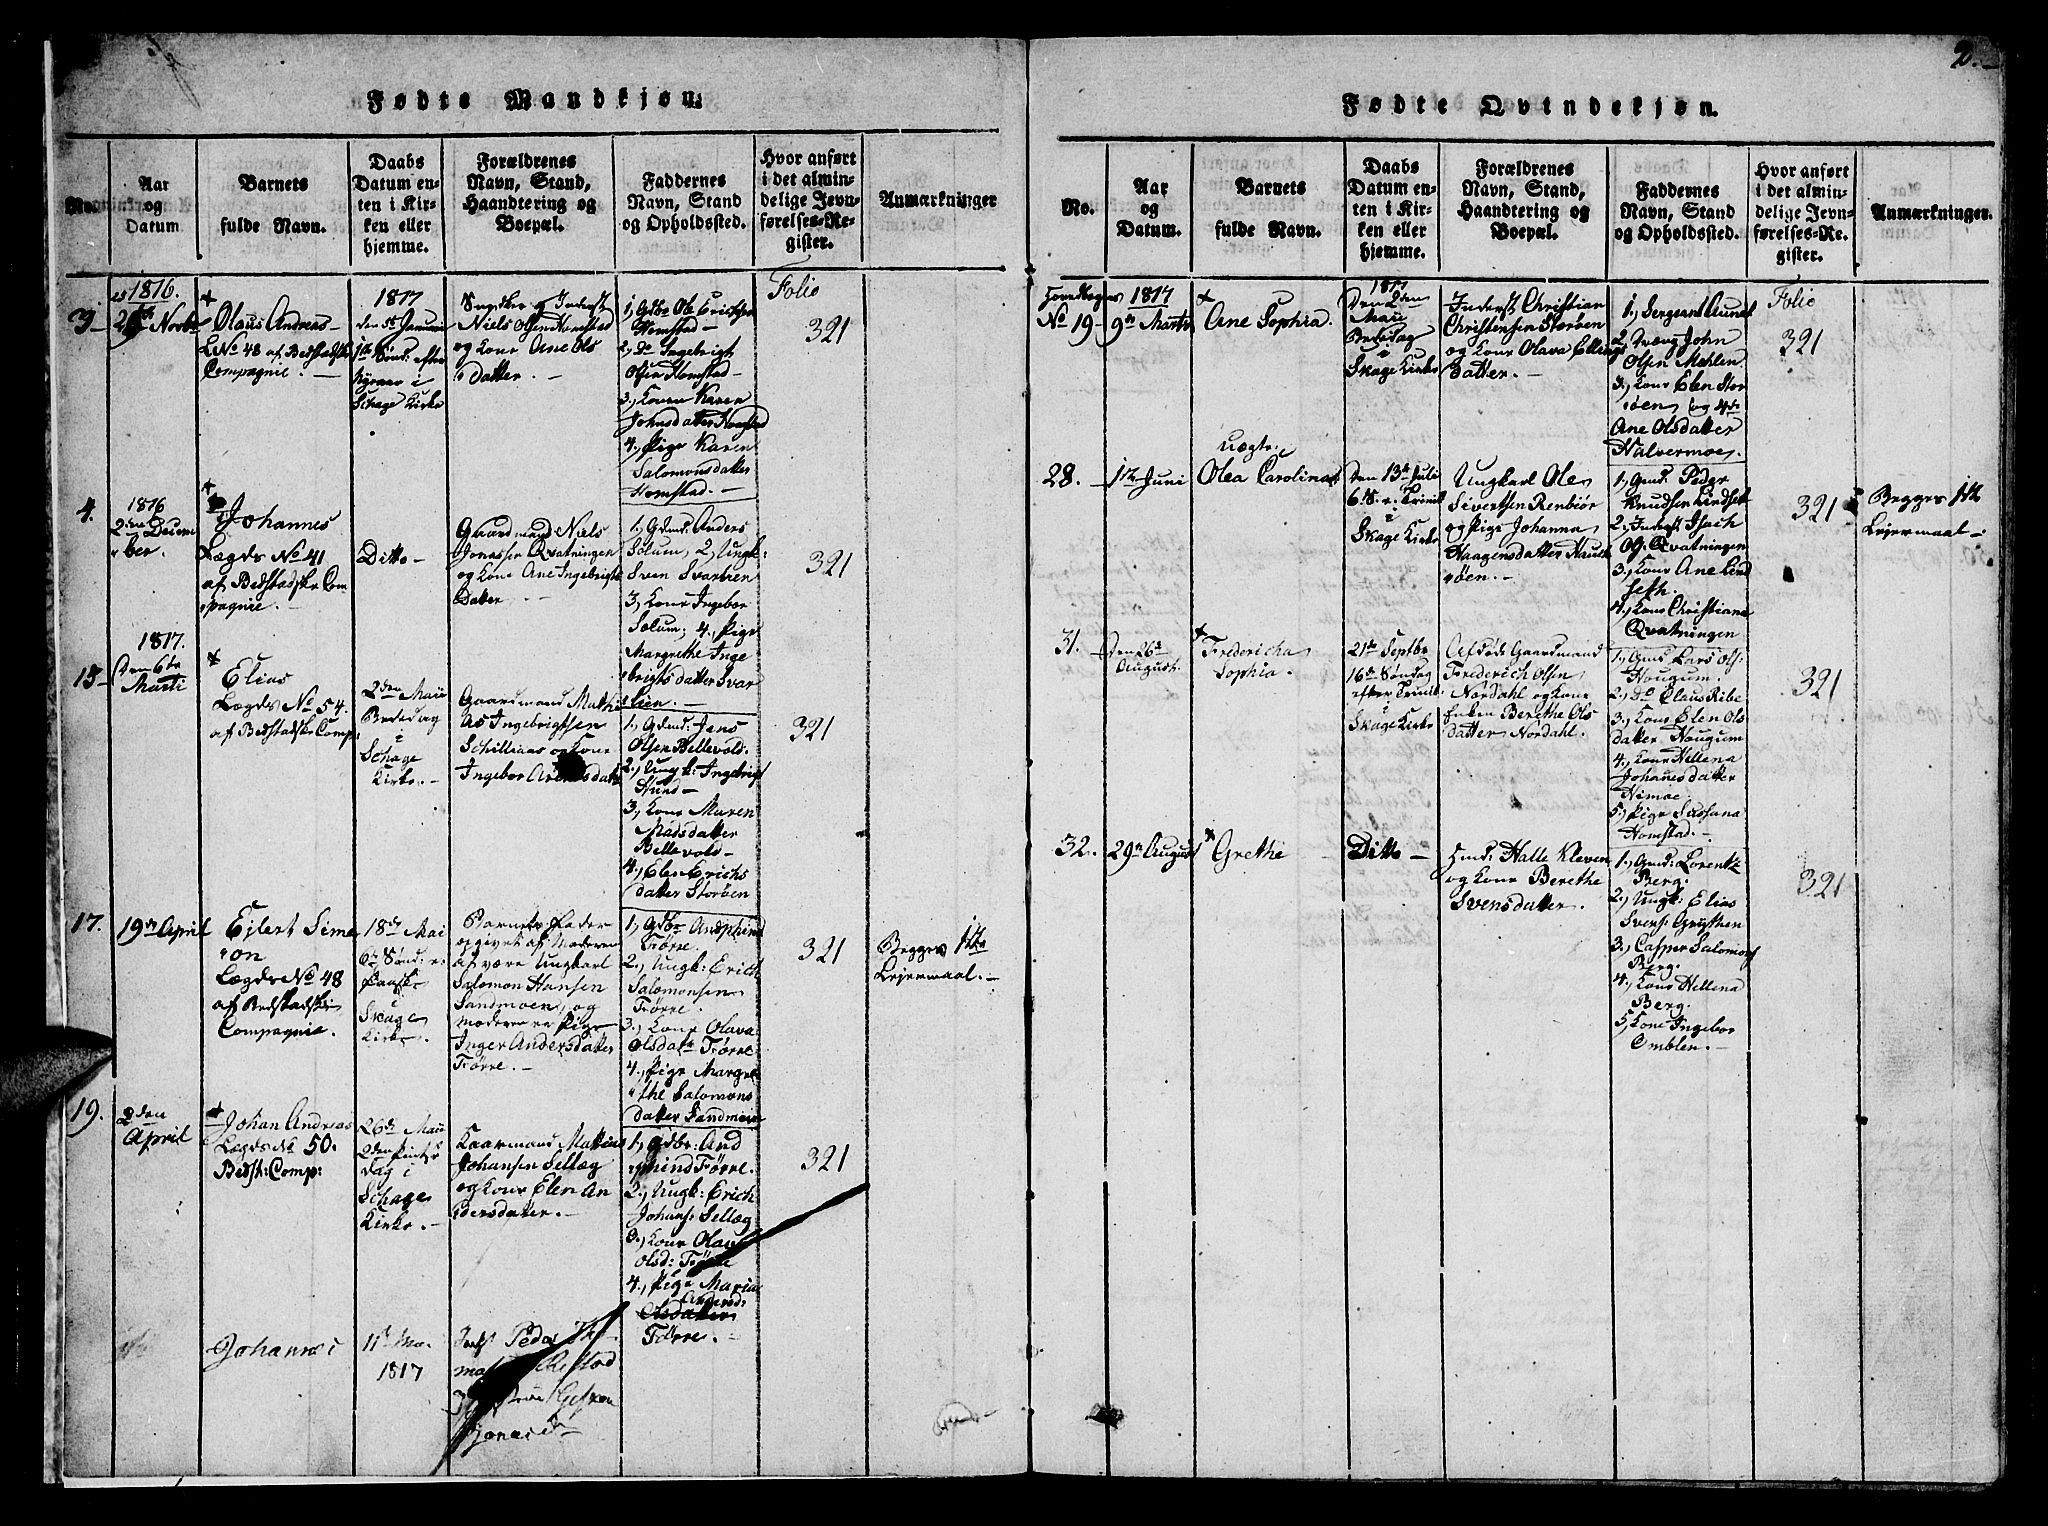 2.
Fødte Mandkjøn.
No.
Aar
og
Datum
Barnets
fulde Navn.
Daabs
Datum en-
ten i Kir-
ken eller
hjemme.
Forældrenes
Navn, Stand,
Haandtering og
Boepæl.
Faddernes
Navn, Stand
og Opholdssted.
Hvor anført
i det almin-
delige Jevn-
førelses-Re-
gister.
Anmærkninger
3
1816.
Novbr
Olaus Andreas
LNo 48 af Bedstadske
Compagnie.
1817
den 5te Januari
1te Sønd. efter
Nyeaar i
Schage Kirke
Niels Olsen Homstad
og Kone Ane Ols
datter.
1, Gdbr Ole Erichsen
Homstad
2, Do Ingebrigt
Olsen Homstad
3, Konen Karen
Johnsdatter Homstad
4, Pige Karen
Salomonsdatter
Homstad.
Folio
321
4.
1816
2den Decem
ber.
Johannes
Lægds No 41
af Bedstadske Com
pagnie.
Ditto
Gaardmand Niels
Jonassen Qvatningen
og Kone Ane Ingebrigts
Datter
1, Gdmd: Anders
Solum, 2, Ungk:
Sven Svartlien
3, Kone Ingebor
Solum; 4, Pige
Margrethe Inge
brigtsdatter Svar
lien.
321
15
1817.
Den 6te
Marti
Elias
Lægds No 54.
af Bedstadske Comp:
2den Maii
Bededag
i
Schage
Kirke.
Gaardmand Mathi
as Ingebrigtsen
Schillaas og Kone
Ingebor Arentsdatter
1, Gdmd: Jens
Olsen Bellevold.
2, Ungk: Ingebrigt
3, Kone Maren
Madsdatter
Bellevold
4, Elen Erichs
datter Storøen
321
17.
19de April
Ejlert Sime
on
Lægds No 48
af Bedstadske
Compagnie.
18de Mai
6te Sønd: e:
Paaske
i
Skage
Kirke.
Barnets Fader
opgivet af Moderen
at være Ungkarl
Salomon Hansen
Sandmoen, og
Moderen er Pige
Inger Andersdatter
Førre.
1, Gdbr Andphind
Førre.
2, Ungk: Erich
Salomonsen
Førre.
3, Kone Olava
Olsdatr Førre
4, Pige Margre
the Salomons
datter Sandmoen
321
Begges 1te
Lejermaal.
19.
2den
April
Johan Andreas
Lægds No 50.
Bedst: Comp:
26de Maii
2den Pintse
dag i
Schage
Kirke.
Gaarmand Mathias
Johansen Sellæg
og Kone Elen An
dersdatter.
1, Gdbr: And
phind Førre.
2, Ungk: Erich
Johans: Sellæg
3, Kone Olava
Olsd: Førre
4, Pige Maria
Andersd:
Olsdatter
Førre.
321
Johannes
11te
1817
Peder
Fødte Qvindekjøn.
No.
Aar
og
Datum.
Barnets
fulde Navn.
Daabs
Datum en-
ten i Kir-
ken eller
hjemme.
Forældrenes
Navn, Stand,
Haandtering og
Boepæl.
Faddernes
Navn, Stand
og Opholdssted.
Hvor anført
i det almin-
delige Jevn-
førelses-Re-
gister.
Anmærkninger.
No 19
1817
9de Martii
Ane Sophia.
1817
Den 2den
Maii
Bededag
i
Skage Kirke
Inderst Christian
Christensen Storøen
og Kone Olava Ellings
datter.
1, Sergeant Aunet
2, Dreng John
Olsen Mehlen
3, Kone Elen Stor
øen, og 4de
Ane Olsdatter
Halvermoe.
Folio
321
28.
1te Juni
Uægte.
Olea Carolina
Den 13de Juli
6 S. e. Trinit.
i
Skage Kirke
Ungkarl Ole
Sivertsen Renbiør
og Pige Johanna
Haagensdatter Hauk
øen.
1, Gmd: Peder
Knudsen Lindset
2, Inderst Isach
Qvatningen
3, Kone Ane Lind
seth.
4, Kone Christiana
Qvatningen
321
Begges 1te
Lejermaal
31.
Den 26de
August.
Fredericha
Sophia.
21de Septbr
16de Søndag
efter Trinit.
i
Skage Kirke
Afdøde Gaardmand
Friderich Olsen
Nordahl og Kone
Enken Berethe Ols
datter Nordahl.
1, Gmd: Lars Ols:
Hougum.
2, Do Claus Ribe
3, Kone Elen Ols
datter Hougum
4, Kone Hellena
Johanesdatter
Himoe.
5, Pige Susana
Homstad.
321
32.
29de August
Grethe
Ditto
Hmd: Halle Kleven
og Kone Berethe
Svensdatter.
1, Gmd: Lorentz
Berg.
2, Ungk: Elias
Svens: Grytthen
3, Casper Salomons
Berg.
4, Kone Hellena
Berg.
5, Kone Ingebor
Omblen.
321